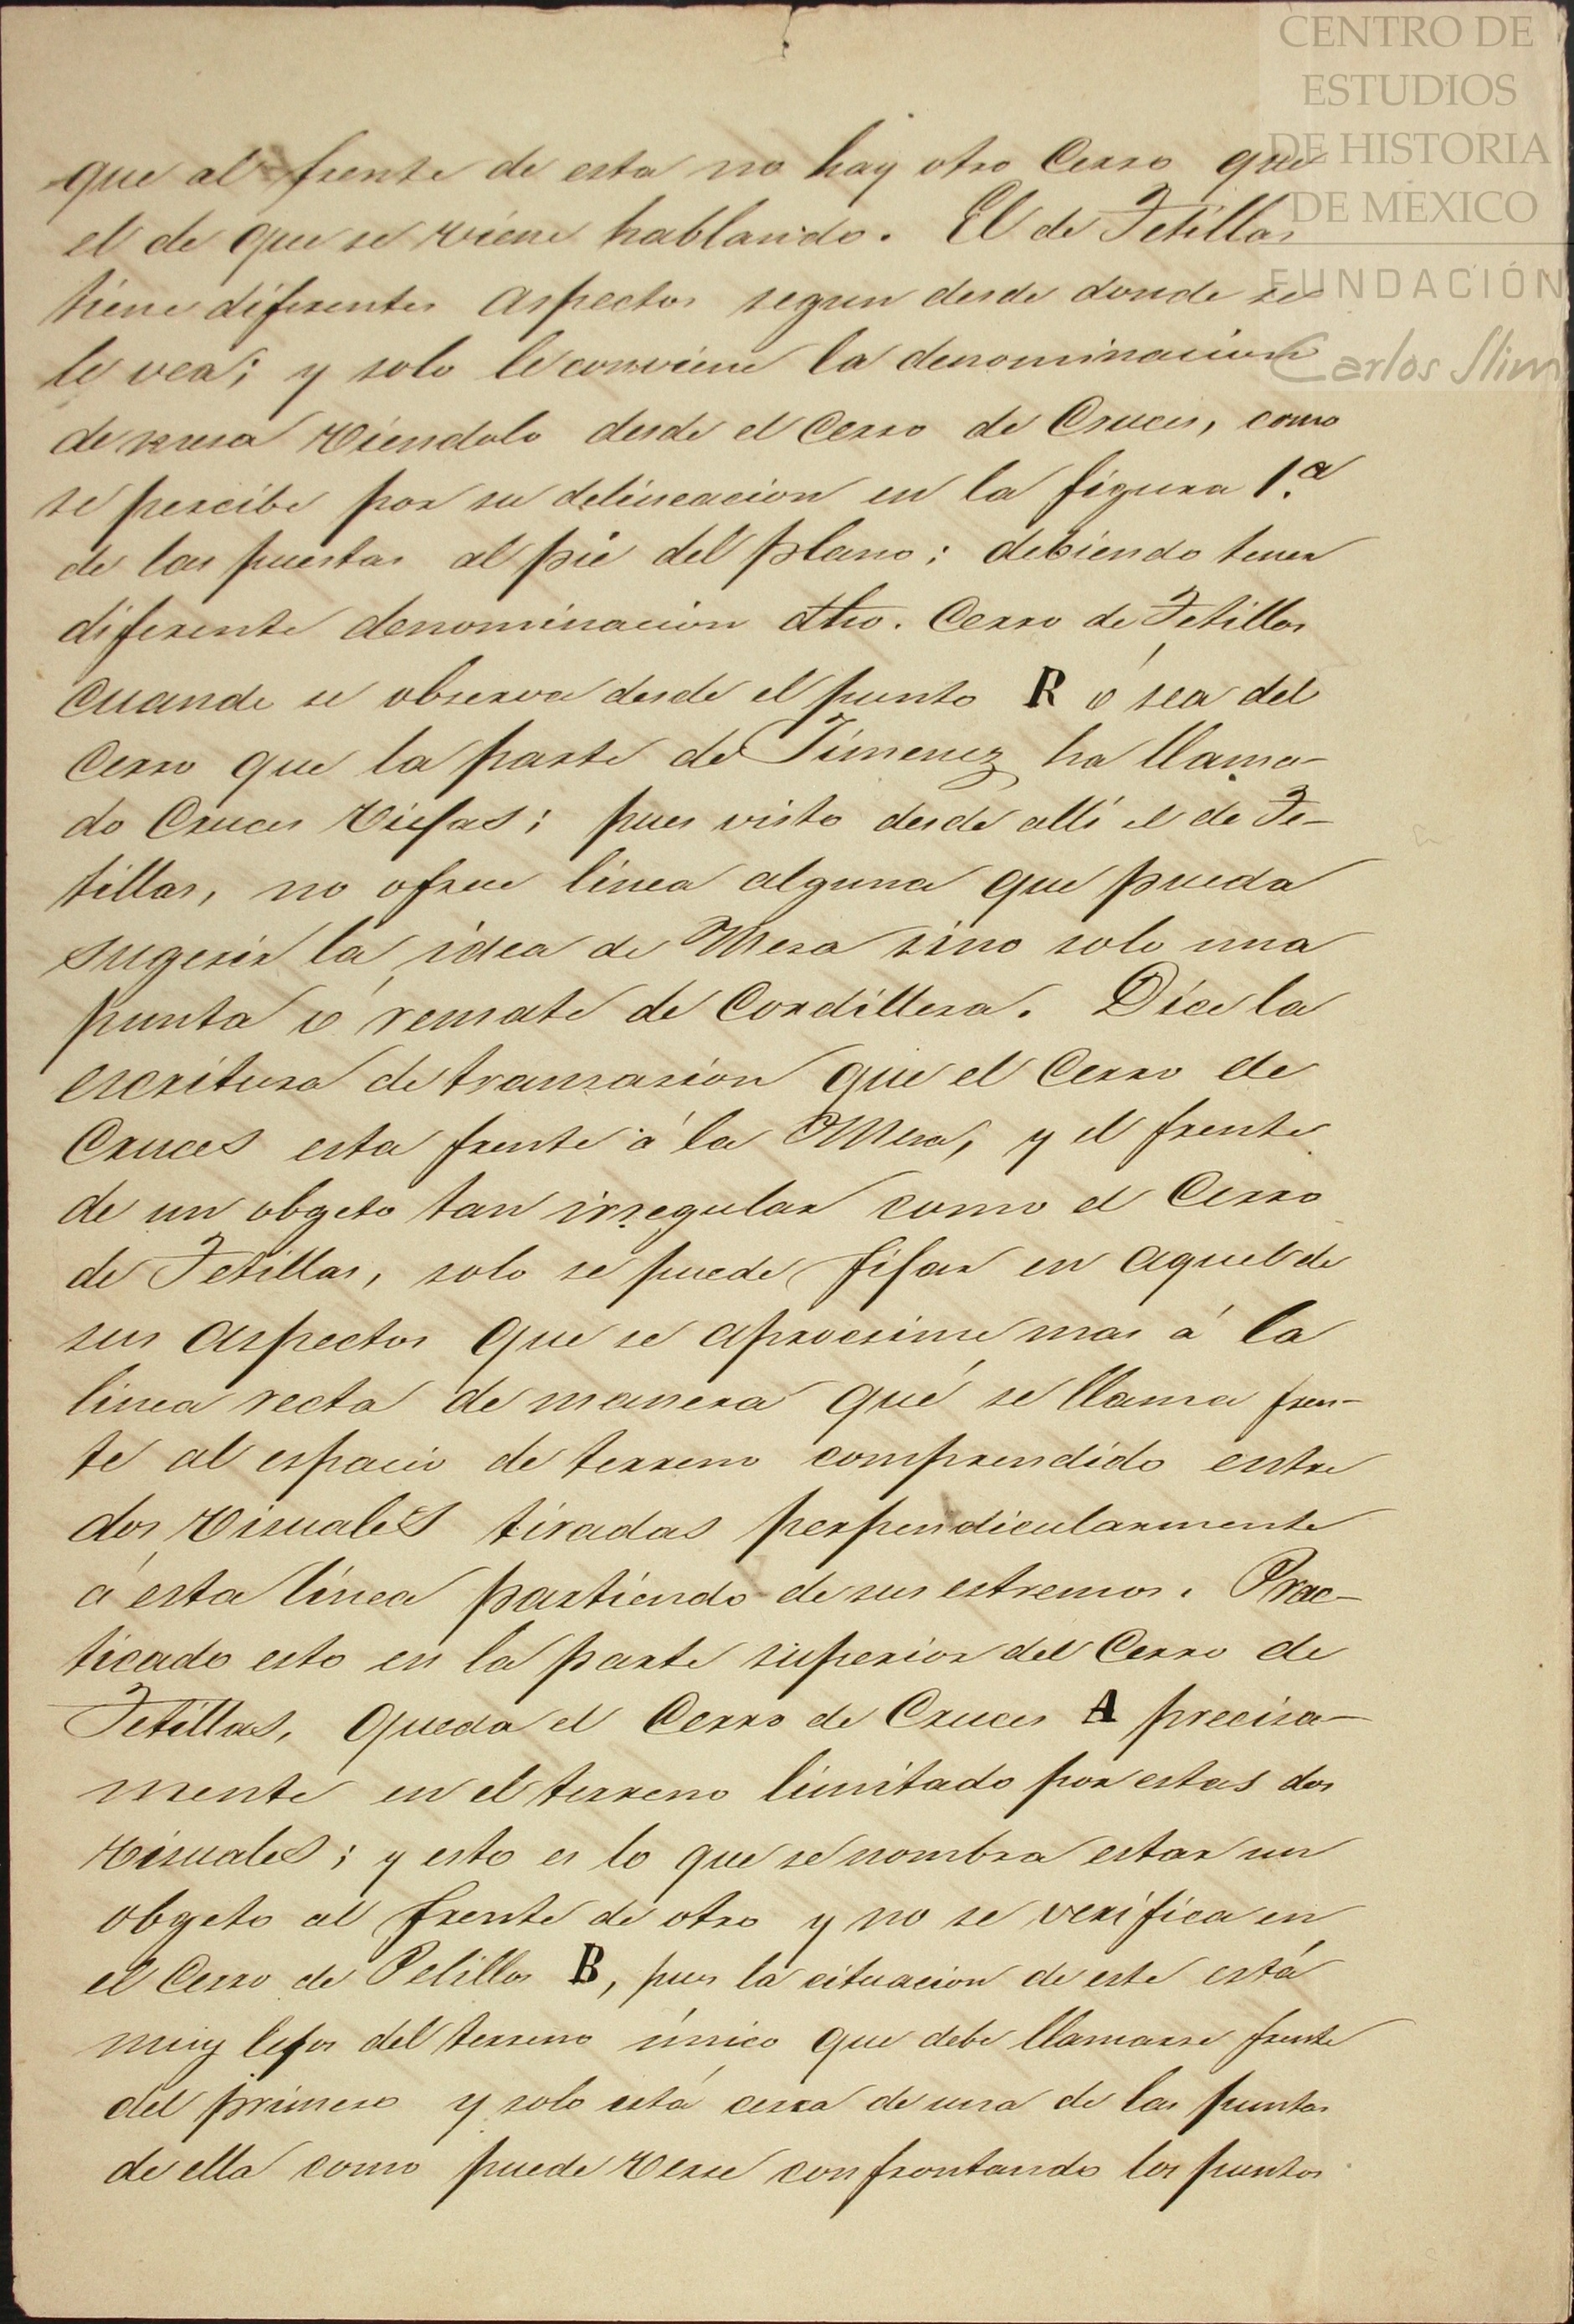 CENTRO DE
ESTUDIOS
DE HISTORIA
DE MÉXICO
FUNDACIÓN
Carlos Slim
que al frente de esta no hay otro Cerro que
el de que se viene hablando. El de Tetillas
tiene diferentes aspectos segun desde donde se
le vea; y solo le conviene la denominacion
de mesa viendolo desde el Cerro de Cruces, como
se percibe por su delineacion en la figura 1.a
de las puestas al pie del plano; debiendo tener
diferente denominacion dho. Cerro de Tetillas
cuando se observa desde el punto R ó sea del
Cerro que la parte de Jimenez ha llama-
do Cruces viejas; pues visto desde allí el de Te-
tillas, no ofrece linea alguna que pueda
sugerir la idea de Mesa sino solo una
punta ó remate de Cordillera. Dice la
escritura de transasion que el Cerro de
Cruces esta frente á la Mesa, y el frente
de un obgeto tan irregular como el Cerro
de Tetillas, solo se puede fijar en aquel de
sus aspectos que se aprocsime mas á la
linea recta de manera qué se llama fren-
te al espacio de terreno comprendido entre
dos visuales tiradas perpendicularmente
á esta linea partiendo de sus estremos. Prac-
ticado esto en la parte superior del Cerro de
Tetillas, queda el Cerro de Cruces A precisa-
mente en el terreno limitado por estas dos
visuales; y esto es lo que se nombra estar un
obgeto al frente de otro y no se verifica en
el Cerro de Pelillos B, pues la cituacion de este está
muy lejos del terreno único que debe llamarse frente
del primero y solo está cerca de una de las puntas
de ella como puede verse confrontando los puntos